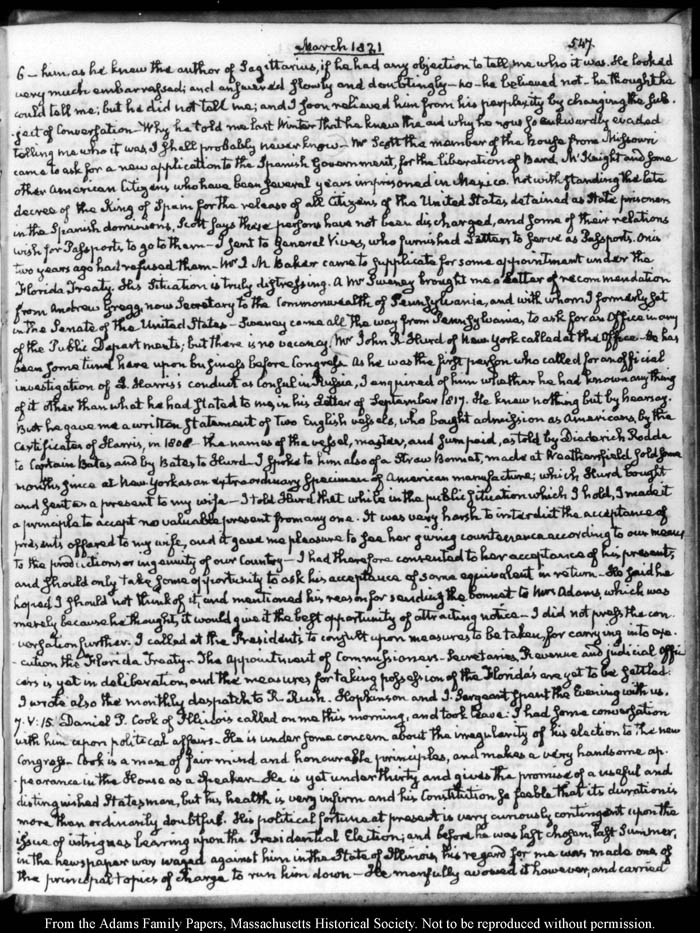 March 1821
547
6 - him, as he knew the author of Sagittarius, if he had any objection to tell me who it was. He looked
very much embarrassed; and answered slowly and doubtingly - no - he believed not - he thought he
could tell me; but he did not tell me; and I soon relieved him from his perplexity by changing the sub-
-ject of conversation - Why he told me last Winter that he knew the and why he now so awkwardly evaded
telling me who it was, I shall probably never know - Mr Scott the member of the house from Missouri
came to ask for a new application to the Spanish Government, for the liberation of Bard, McKnight and some
other American Citizens who have been several years imprisoned in Mexico. Notwithstanding the late
decree of the King of Spain for the release of all Citizens of the United States, detained as State prisoners
in the Spanish dominions, Scott says these persons have not been discharged, and some of their relations
wish for Passports to go to them - I sent to General Vives, who furnished Letters to serve as Passports. Onis
two years ago had refused them - Mr I. M. Baker came to supplicate for some appointment under the
Florida Treaty. His Situation is truly distressing. A Mr Sweney brought me a Letter of recommendation
from Andrew Gregg, now Secretary to the Commonwealth of Pennsylvania, and with whom I formerly sat
in the Senate of the United States - Sweney came all the way from Pennsylvania, to ask for an Office in any
of the Public Departments; but there is no vacancy. Mr John R. Hurd of New York called at the Office. He has
been some time here upon business before Congress. As he was the first person who called for an official
investigation of L. Harris's conduct as Consul in Russia, I enquired of him whether he had known any thing
of it other than what he had stated to me, in his Letter of September 1817. He knew nothing but by hearsay.
But he gave me a written Statement of two English vessels, who bought admission as Americans, by the
Certificates of Harris, in 1808 - the names of the vessel, master, and sum paid, as told by Diederich Rodde
to Captain Bates and by Bates to Hurd - I spoke to him also of a Straw Bonnet, made at Weathersfield sold some
months since at New York as an extraordinary Specimen of American manufacture; which Hurd bought
and sent as a present to my wife - I told Hurd that while in the public situation which I hold, I made it
a principle to accept no valuable present from any one. It was very harsh to interdict the acceptance of
presents offered to my wife, and it gave me pleasure to see her giving countenance according to our means
to the productions or ingenuity of our Country - I had therefore consented to her acceptance of his present;
and should only take some opportunity to ask his acceptance of some equivalent in return - He said he
hoped I should not think of it, and mentioned his reason for sending the bonnet to Mrs Adams, which was
merely because he thought, it would give it the best opportunity of attracting notice - I did not press the con-
-versation further. I called at the Presidents to consult upon measures to be taken, for carrying into exe-
-cution the Florida Treaty - The Appointment of Commissioners - Secretaries, Revenue and judicial Offi-
cers is yet in deliberation, and the measures for taking possession of the Florida's are yet to be settled.
I wrote also the monthly despatch to R. Rush. Hopkinson and J. Sergeant spent the Evening with us.
7. V:15. Daniel P. Cook of Illinois called on me this morning, and took leave. I had some conversation
with him upon political affairs - He is under some concern about the irregularity of his election to the new
Congress. Cook is a man of fair mind and honourable principles, and makes a very handsome ap-
-pearance in the House as a Speaker - He is yet under thirty and gives the promise of a useful and
distinguished Statesman, but his health is very infirm and his Constitution so feeble that its duration is
more than ordinarily doubtful. His political fortune at present is very curiously contingent upon the
issue of intrigues bearing upon the Presidential Election; and before he was last chosen, last Summer,
in the newspaper war waged against him in the State of Illinois, his regard for me was made one of
the principal topics of charge to run him down - He manfully avowed it however, and carried
From the Adams Family Papers, Massachusetts Historical Society. Not to be reproduced without permission.